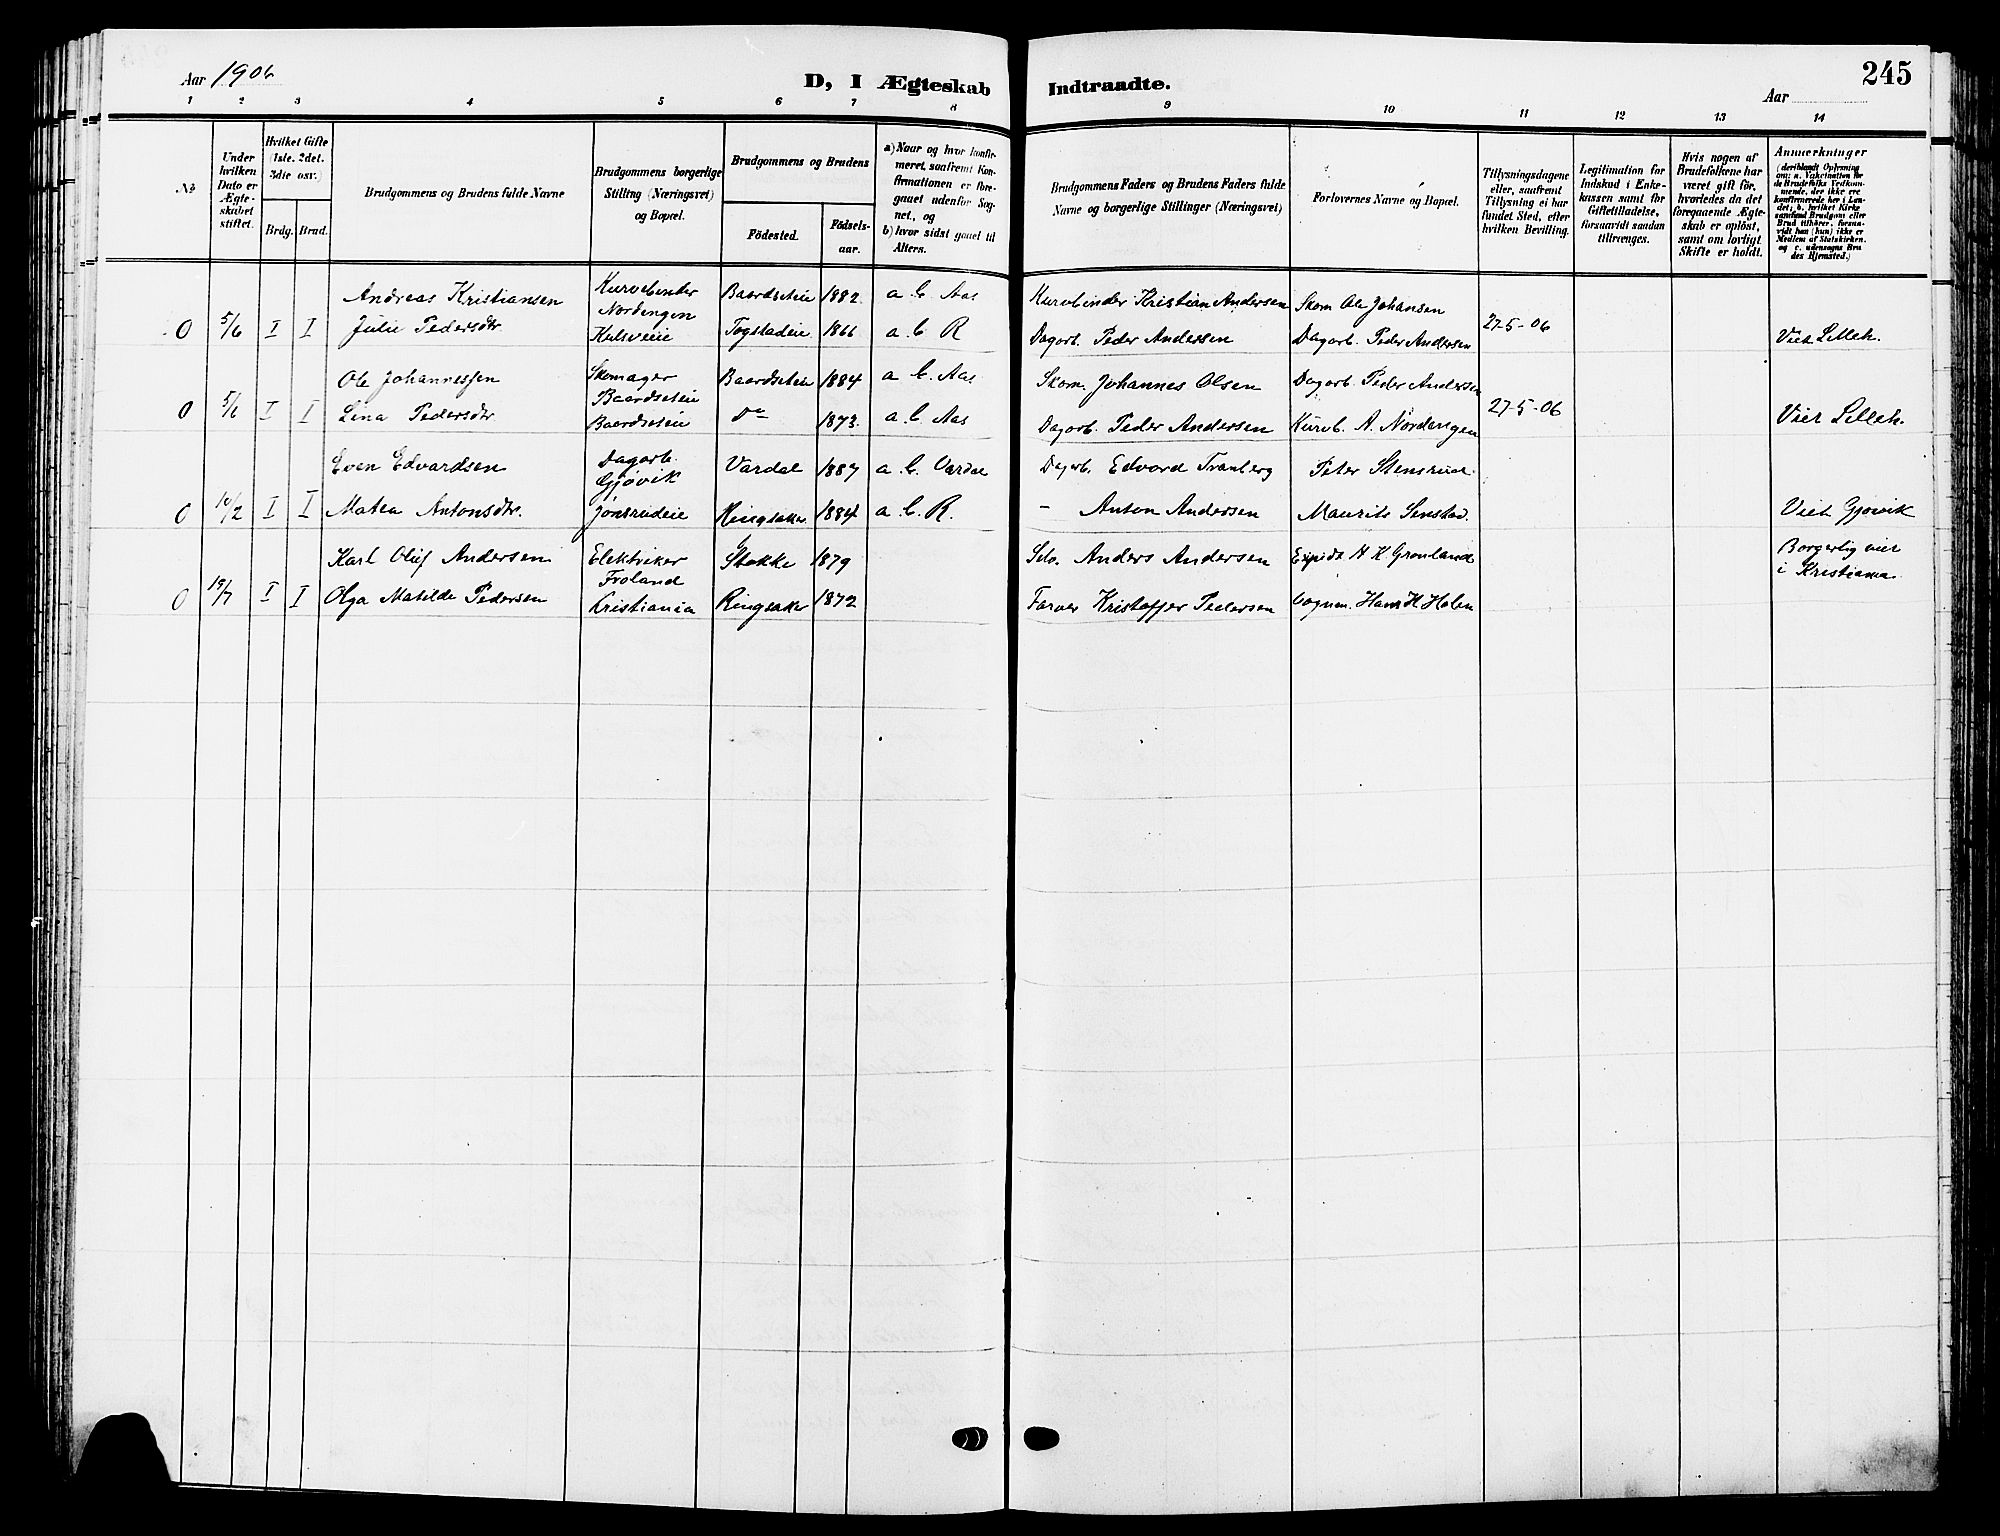 Aar 1906
D, I Ægteskab Indtraadte.
Aar
245
1 2 3 4 5 6 7 8 9 10 11 12 13 14
No
Under hvilken Dato er Ægteskabet stiftet.
Hvilket Gifte (1ste, 2det, 3die osv.)
Brdg. Brud.
Brudgommens og Brudens fulde Navne
Brudgommens borgerlige Stilling (Næringsvei) og Bopæl.
Brudgommens og Brudens
Födested.
Födselsaar.
a) Naar og hvor konfirmeret, saafremt Konfirmationen er foregaaet udenfor Sognet, og
b) hvor sidst gaaet til Alters.
Brudgommens Faders og Brudens Faders fulde Navne og borgerlige Stillinger (Næringsvei)
Forlovernes Navne og Bopæl.
Tillysningsdagene eller, saafremt Tillysning ei har fundet Sted, efter hvilken Bevilling.
Legitimation for Indskud i Enkekassen samt for Giftetilladelse, forsaavidt saadan tiltrænges.
Hvis nogen af Brudefolkene har været gift før, hvorledes da det foregaaende Ægteskab er opløst, samt om lovligt Skifte er holdt.
Anmærkninger (deriblandt Oplysning om: a. Vaksination for de Brudefolks Vedkommende, der ikke ere konfirmerede her i Landet; b. hvilket Kirkesamfund Brudgom eller Brud tilhører, forsaavidt han (hun) ikke er Medlem af Statskirken, og c. udensogns Brudes Hjemsted.)
Andreas Kristiansen Kurvebinder Nordengen Baardseteie 1882 a. b. Aas Kurvbinder Kristian Andersen Skom Ole Johansen
0 5/6 I I Julie Pedersdtr Kulsveie Togstadeie 1866 a. b. R Dagarb. Peder Andersen Dagarb. Peder Andersen 27-5-06 Viet Lilleh.
Ole Johannessen Skomager Baardseteie Baardseteie 1884 a. b. Aas Skom. Johannes Olsen Dagarb. Peder Andersen
0 5/6 I I Lina Pedersdtr Baardseteie Do 1873. a. b. Aas Dagarb. Peder Andersen Kurvb. A. Nordengen 27-5-06 Viet Lilleh.
Even Edvardsen Dagarb. Gjøvik Vardal 1887 a. b. Vardal Dagarb. Edvard Tranberg Peter Stensrud
0 10/2 I I Matea Antonsdtr. Jonsrudeie Ringsaker 1884 a. b. R. - Anton Andersen Maurits Senstad. Viet Gjøvik
Karl Oluf Andersen Elektriker Froland Stokke 1879 Selv. Anders Andersen H. K. Grønland Borgerlig viet i Kristiania
0 19/7 I I Olga Matilde Pedersen Kristiania Ringsaker 1872 Farver Kristoffer Pedersen Hans H. Holen